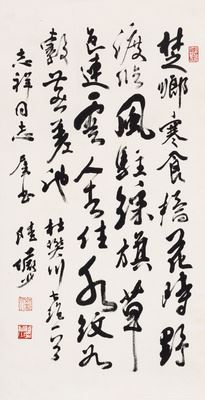 楚鄉寒食橘花時野
渡臨風駐綵旗草
色連雲人去住水紋如
縠燕差池 杜樊川七絕一首
志祥同志屬書 陸儼少